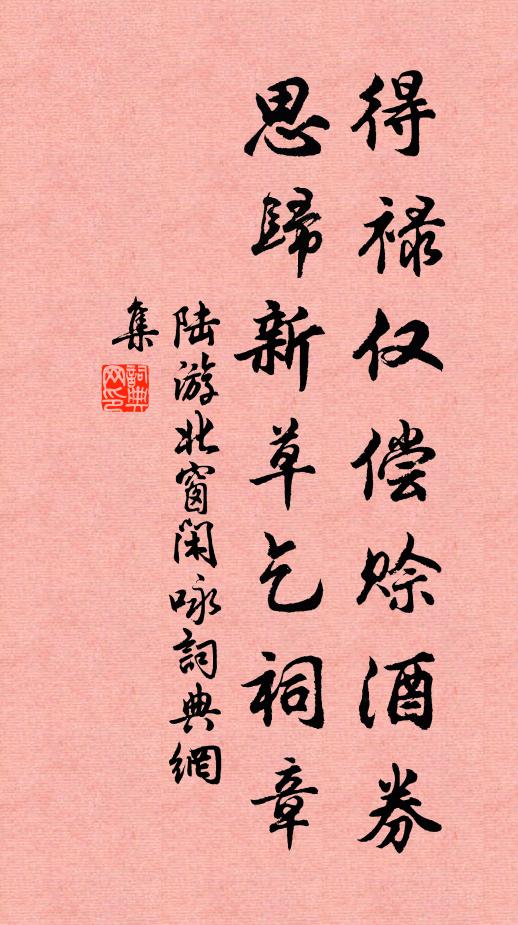 得禄仅偿赊酒券
思歸新草乞祠章
陆游北窗閑咏詞典網
集
詞典
网印